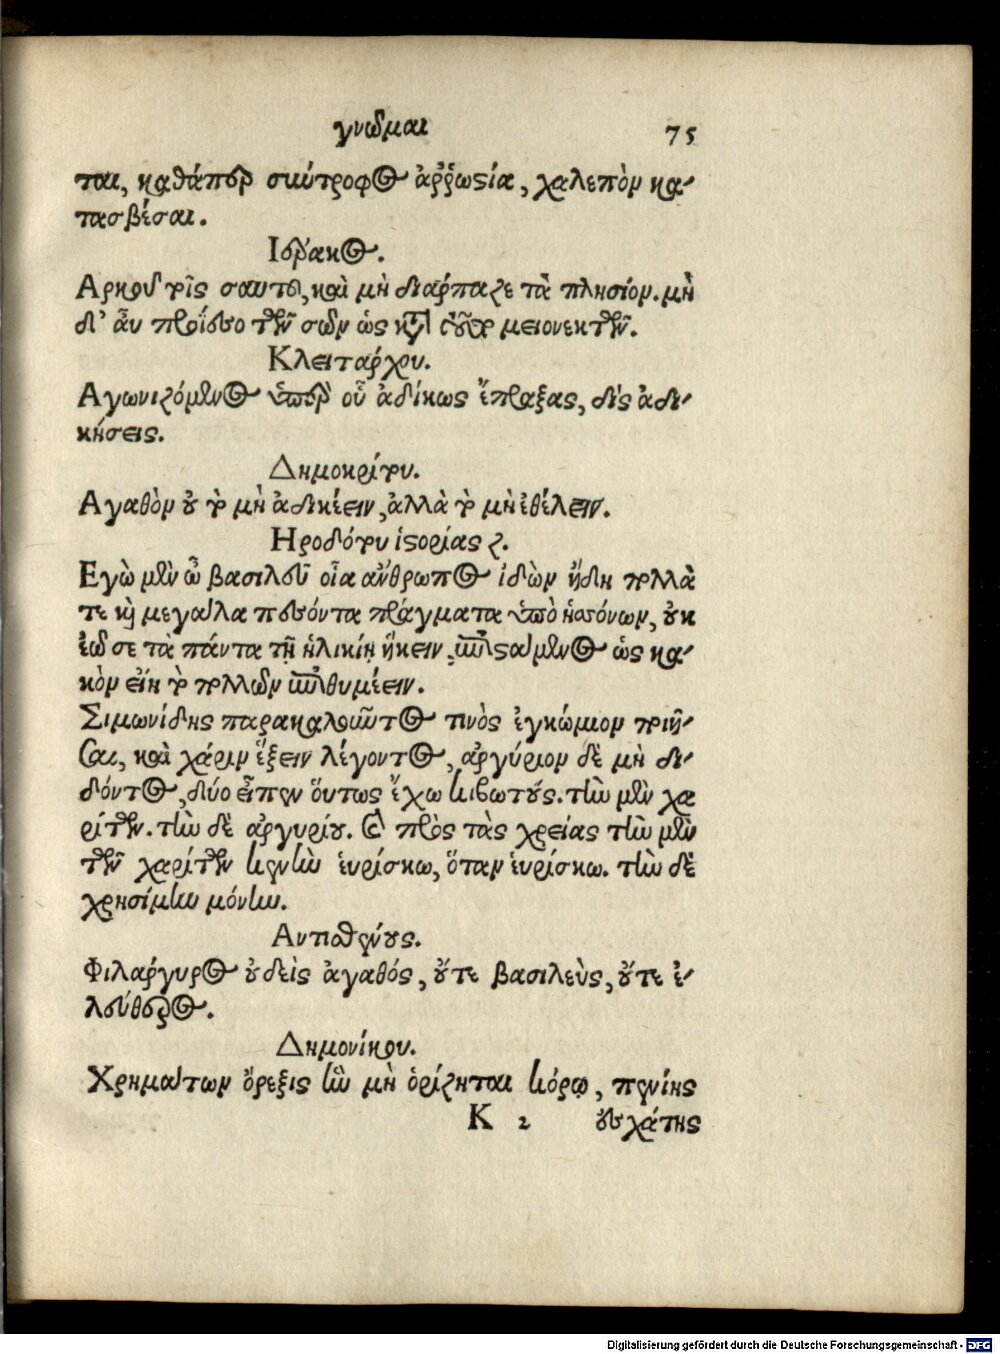 γνῶμαι 75
ται, καθάπερ σύντροφος ἀῤῥωστία, χαλεπὸν κα-
τασβέσαι.
Ἱέρακος.
Αρκοῦ τοῖς σαυτοῦ, καὶ μὴ διάρπαζε τὰ πλησίον. μὴ
δι' ἂν προΐεσο τῶν σῶν ὡς καὶ μειονεκτῶν.
Κλειτάρχου.
Αγωνιζόμενος ὑπὲρ οὗ ἀδίκως ἔπραξας, δὶς ἀδι-
κήσεις.
Δημοκρίτου.
Αγαθὸν οὐ τὸ μὴ ἀδικέειν, ἀλλὰ τὸ μὴ ἐθέλειν.
Ηροδότου ἱστορίας ζ.
Εγὼ μὲν ὦ βασιλεῦ οἷα ἄνθρωπος ἰδὼν ἤδη πολλὰ
τε καὶ μεγάλα πεσόντα πράγματα ὑπὸ ἡσσόνων, οὐκ
ἔων σε τὰ πάντα τῇ ἡλικίῃ ἥκειν, ἐπιστάμενος ὡς κα-
κὸν εἴη τὸ πολλῶν ἐπιθυμέειν.
Σιμωνίδης παρακαλοῦντος τινὸς ἐγκώμιον ποιῆ-
σαι, καὶ χάριν ἕξειν λέγοντος, ἀργύριον δὲ μὴ δι-
δόντος, δύο εἶπεν οὕτως ἔχω κιβωτούς. τὴν μὲν χα
ρίτων. τὴν δὲ ἀργυρίου. καὶ πρὸς τὰς χρείας τὴν μὲν
τῶν χαρίτων κενὴν εὑρίσκω, ὅταν εὑρίσκω. τὴν δὲ
χρησίμην μόνην.
Αντισθένους.
Φιλάργυρος οὐδεὶς ἀγαθός, οὔτε βασιλεὺς, οὔτε ἐ-
λεύθερος.
Δημονίκου.
Χρημάτων ὄρεξις ἢν μὴ ὁρίζηται κόρῳ, πενίης
K 2 ἐσχάτης
Digitalisierung gefördert durch die Deutsche Forschungsgemeinschaft - DFG